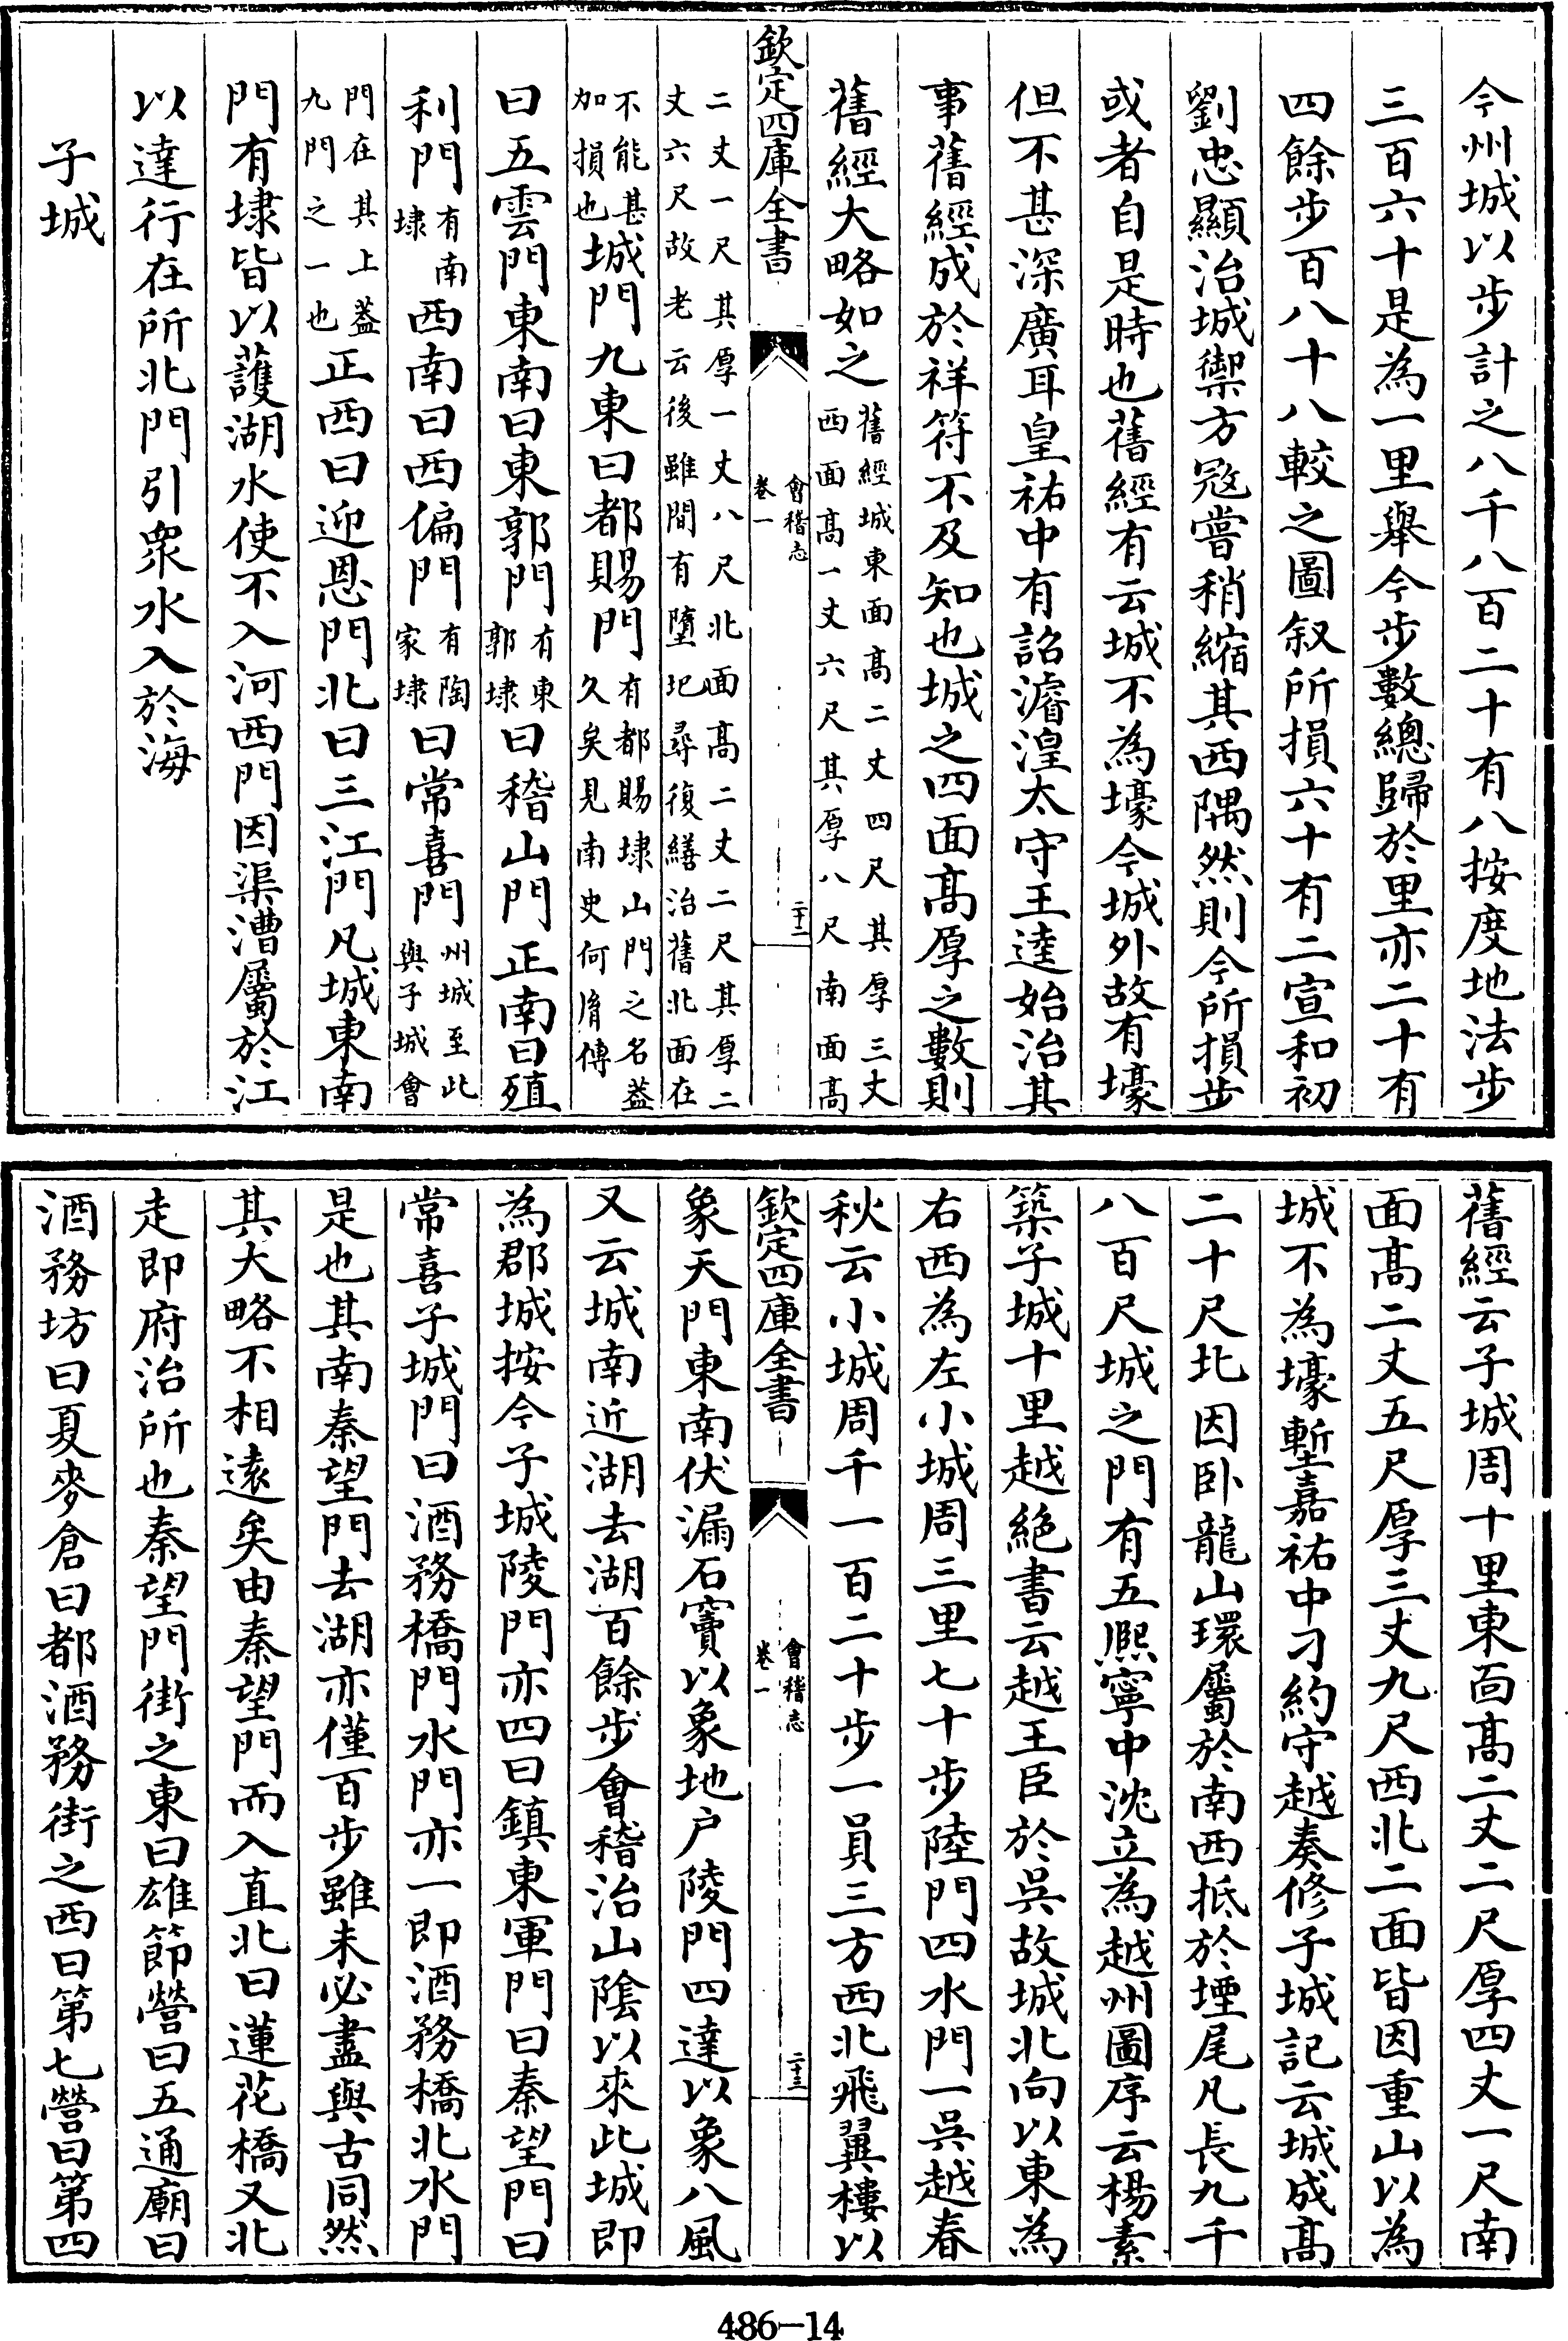 今州城以步計之八千八百二十有八按度地法步
三百六十是為一里舉今步數總歸於里亦二十有
四餘步百八十八較之圖叙所損六十有二宣和初
劉忠顯治城禦方冦嘗稍縮其西隅然則今所損步
或者自是時也舊經有云城不為壕今城外故有壕
但不甚深廣耳皇祐中有詔濬湟太守王逵始治其
事舊經成於祥符不及知也城之四面髙厚之數則
舊經大略如之舊經城東面髙二丈四尺其厚三丈
西面髙一丈六尺其厚八尺南面髙
欽定四庫全書
會稽志
卷一
二十二
二丈一尺其厚一丈八尺北面髙二丈二尺其厚二
丈六尺故老云後雖間有墮圮尋復繕治舊北面在
不能甚
加損也城門九東曰都賜門有都賜埭山門之名葢
久矣見南史何𦙍傳
曰五雲門東南曰東郭門有東
郭埭曰稽山門正南曰殖
利門有南
埭西南曰西偏門有陶
家埭曰常喜門州城至此
與子城會
門在其上葢
九門之一也正西曰迎恩門北曰三江門凡城東南
門有埭皆以䕶湖水使不入河西門因渠漕屬於江
以達行在所北門引衆水入於海
子城
舊經云子城周十里東面髙二丈二尺厚四丈一尺南
面髙二丈五尺厚三丈九尺西北二面皆因重山以為
城不為壕塹嘉祐中刁約守越奏修子城記云城成髙
二十尺北因卧龍山環屬於南西抵於堙尾凡長九千
八百尺城之門有五熈寧中沈立為越州圖序云楊素
築子城十里越絶書云越王臣於吳故城北向以東為
右西為左小城周三里七十步陸門四水門一吳越春
秋云小城周千一百二十步一員三方西北飛翼樓以
欽定四庫全書
會稽志
卷一
二十三
象天門東南伏漏石竇以象地户陵門四達以象八風
又云城南近湖去湖百餘步會稽治山隂以來此城即
為郡城按今子城陵門亦四曰鎮東軍門曰秦望門曰
常喜子城門曰酒務橋門水門亦一即酒務橋北水門
是也其南秦望門去湖亦僅百步雖未必盡與古同然
其大略不相遠矣由秦望門而入直北曰蓮花橋又北
走即府治所也秦望門街之東曰雄節營曰五通廟曰
酒務坊曰夏麥倉曰都酒務街之西曰第七營曰第四
486-14